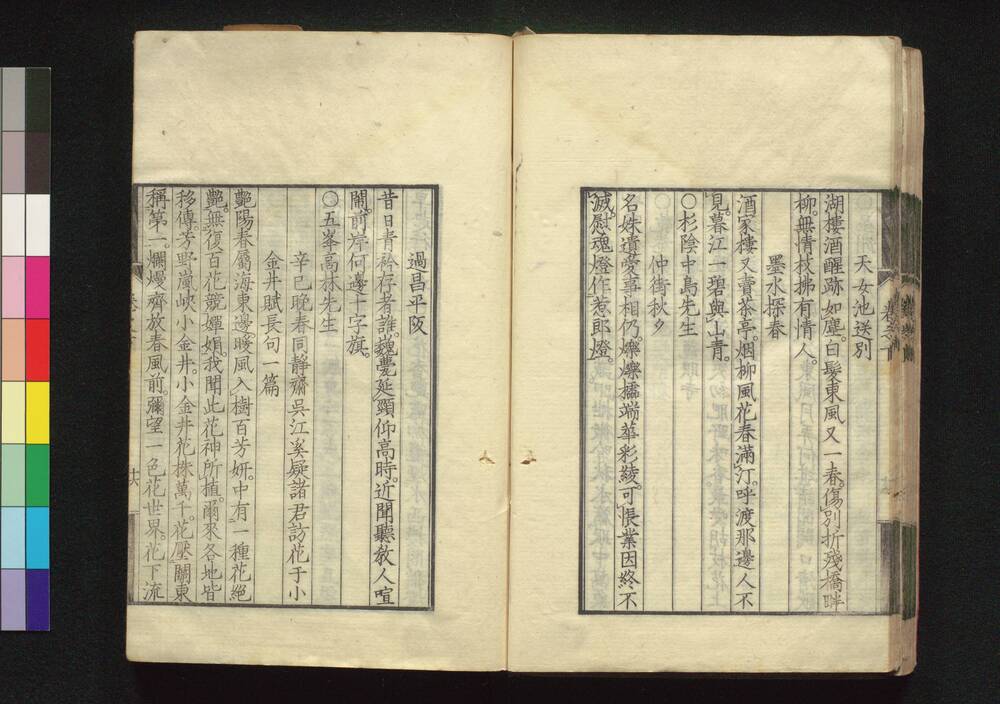 天女池送別
湖樓酒醒跡如塵。白髮東風又一春。傷別折殘橋畔
柳。無情枝拂有情人。
墨水探春
酒家樓又賣茶亭。烟柳風花春滿汀。呼渡那邊人不
見。暮江一碧與山青。
〇杉陰中島先生
仲街秋夕
名姝遺愛事相仍。爍爍攜端華彩綾。可悵業因終不
滅。慰魂燈作惹郎燈。
過昌平阪
昔日青衿存者誰。巍甍延頸仰高時。近聞聽教人喧
鬧。前岸何邊十字旗。
〇五峯高林先生
辛巳晚春同靜齋吳江奚疑諸君訪花于小
金井賦長句一篇
艷陽春屬海東邊。暖風入樹百芳妍。中有一種花絕
艷。無復百花競嬋娟。我聞此花神所植。爾來各地皆
移傳。芳野嵐峽小金井。小金井花株萬千。花壓關東
稱第一。爛熳齊放春風前。彌望一色花世界。花下流